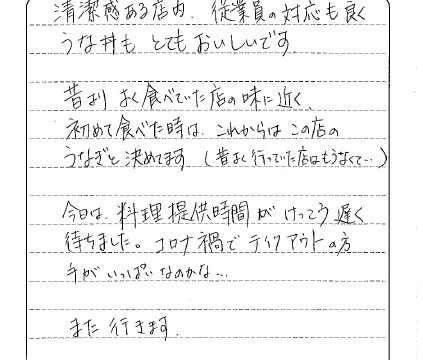 清潔感ある店内、従業員の対応も良く
うな丼も とてもおいしいです。
昔より よく食べていた店の味に近く、
初めて食べた時は、これからは この店の
うなぎと決めてます。(昔よく行っていた店はもうなくて…)
今日は、料理提供時間が けっこう遅く
待ちました。コロナ禍で テイクアウトの方
手がいっぱいなのかな…
また 行きます。